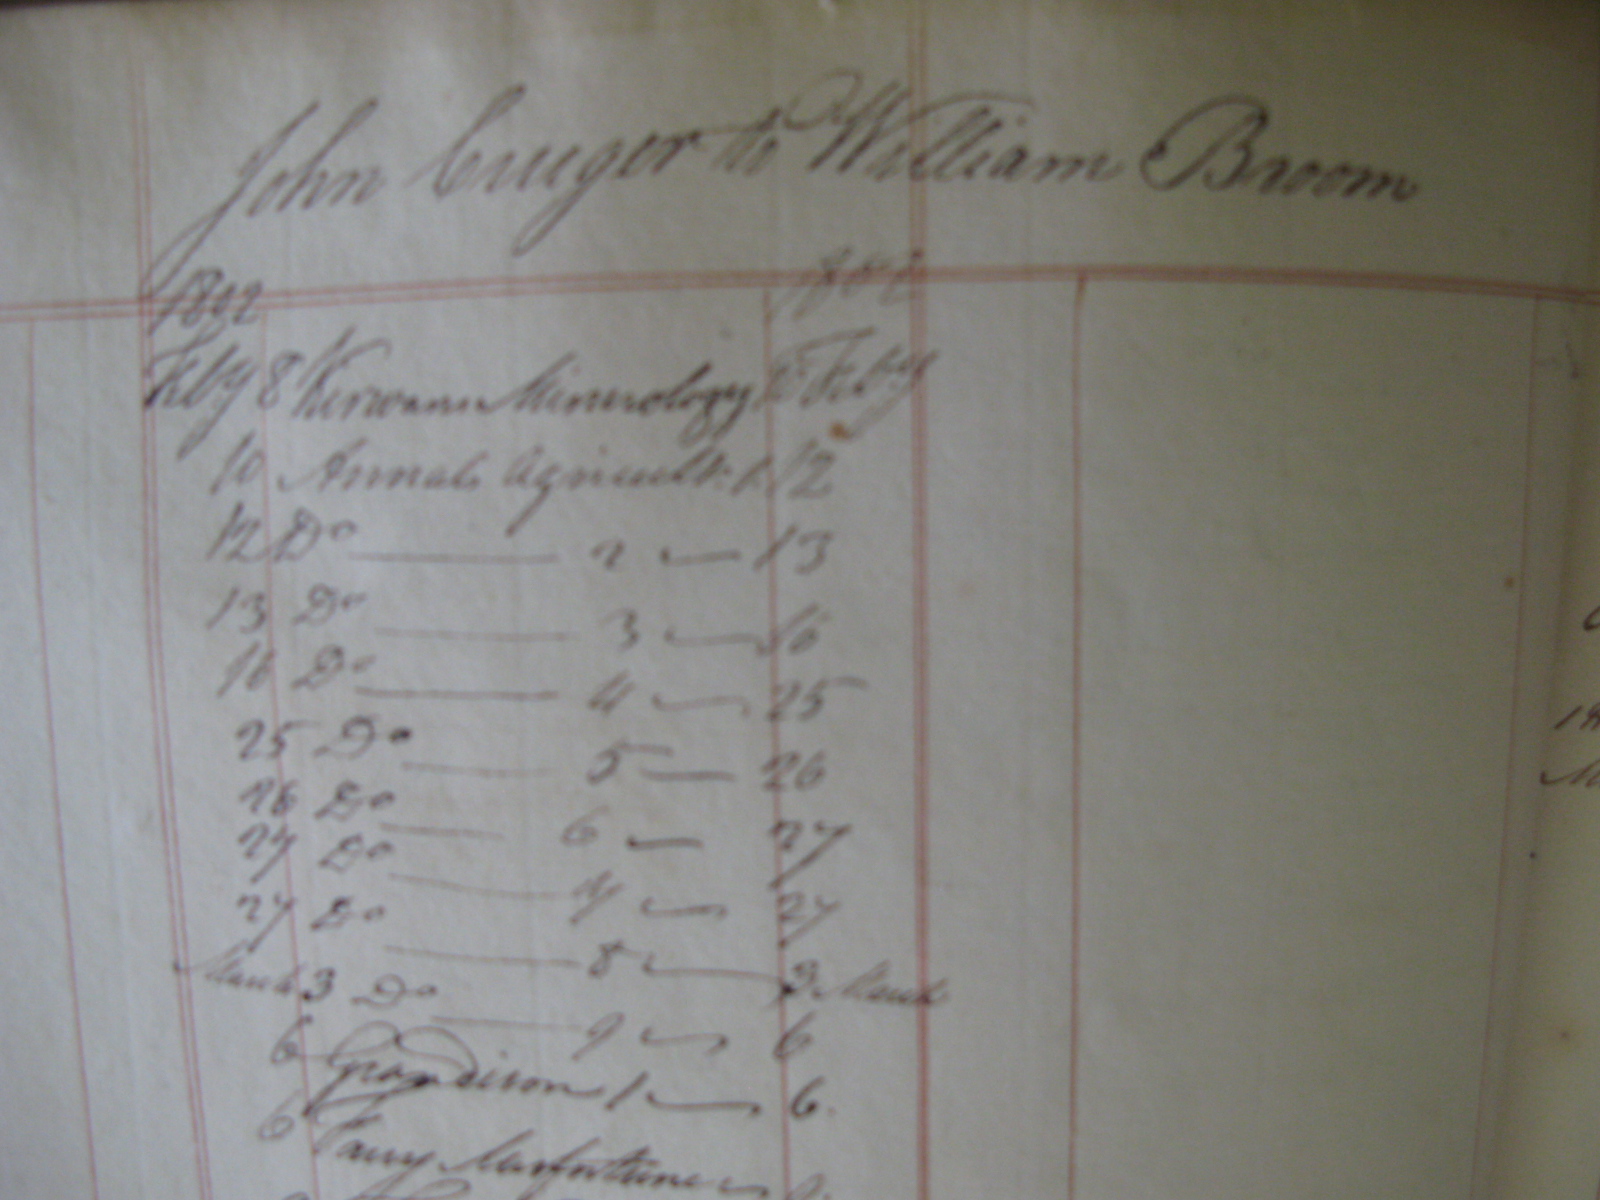 John Cruger to William Broom
1802 1802
Feby 8 Kerwans Minerology Feby
10 Annals Agricult: 1. 12
12 Do 2 13
13 Do 3 16
16 Do 4 25
25 Do 5 26
26 Do 6 27
27 Do 7 27
27 Do 8 3 March
March 3 Do 9 6
6 Grandison 1 6.
6